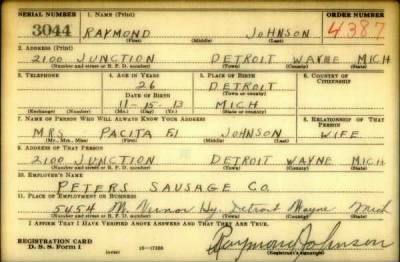 SERIAL NUMBER 1. NAME (Print) ORDER NUMBER
3044 RAYMOND JOHNSON 4387
(First) (Middle) (Last)
2. ADDRESS (Print)
2100 JUNCTION DETROIT WAYNE MICH
(Number and street or R. F. D. number) (Town) (County) (State)
3. TELEPHONE 4. AGE IN YEARS 5. PLACE OF BIRTH 6. COUNTRY OF CITIZENSHIP
26 DETROIT
DATE OF BIRTH (Town or county)
11-15-13 MICH
(Exchange) (Number) (Mo.) (Day) (Yr.) (State or country)
7. NAME OF PERSON WHO WILL ALWAYS KNOW YOUR ADDRESS 8. RELATIONSHIP OF THAT PERSON
MRS PACITA JOHNSON WIFE
(Mr., Mrs., Miss) (First) (Middle) (Last)
9. ADDRESS OF THAT PERSON
2100 JUNCTION DETROIT WAYNE MICH
(Number and street or R. F. D. number) (Town) (County) (State)
10. EMPLOYER'S NAME
PETERS SAUSAGE CO.
11. PLACE OF EMPLOYMENT OR BUSINESS
5454 Vernor Hy. Detroit Wayne Mich
(Number and street or R. F. D. number) (Town) (County) (State)
I AFFIRM THAT I HAVE VERIFIED ABOVE ANSWERS AND THAT THEY ARE TRUE.
REGISTRATION CARD
D. S. S. Form 1 16-17105 Raymond Johnson
(Registrant's signature)